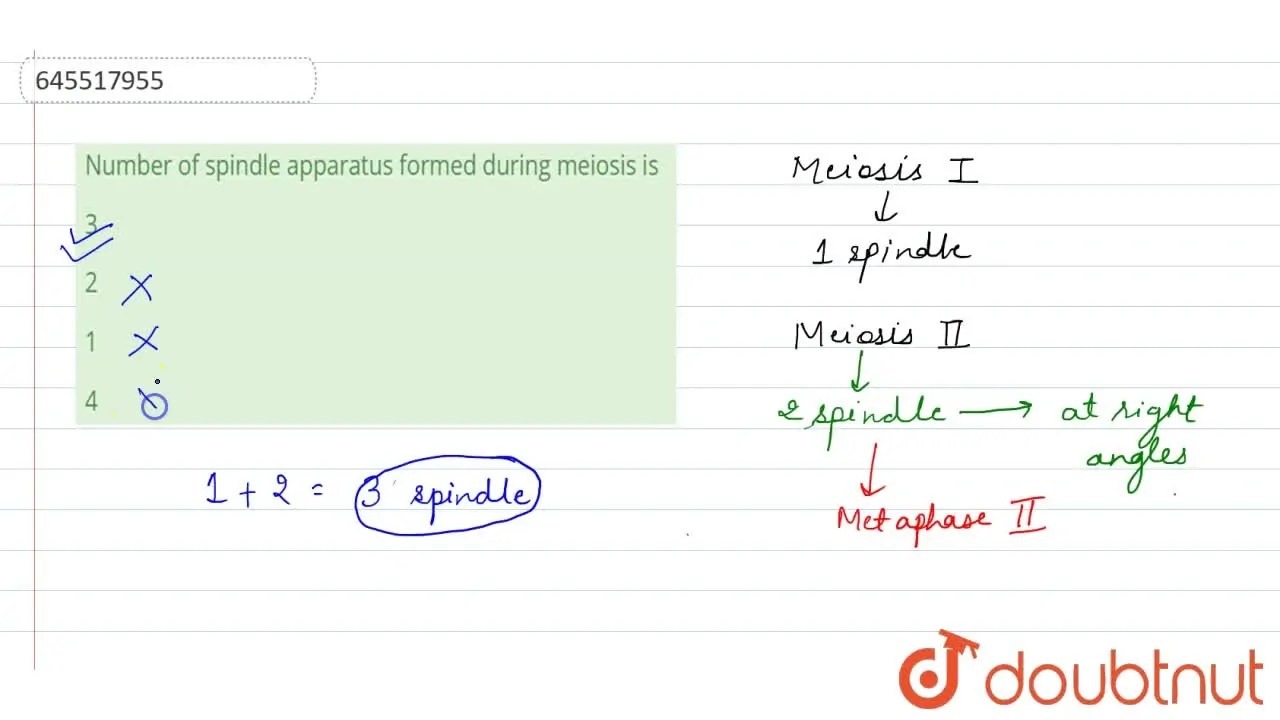 645517955
Number of spindle apparatus formed during meiosis is
3
2
1
4
1 + 2 = 3 spindle
Meiosis I
1 spindle
Meiosis II
2 spindle → at right
angles
Metaphase II
doubtnut